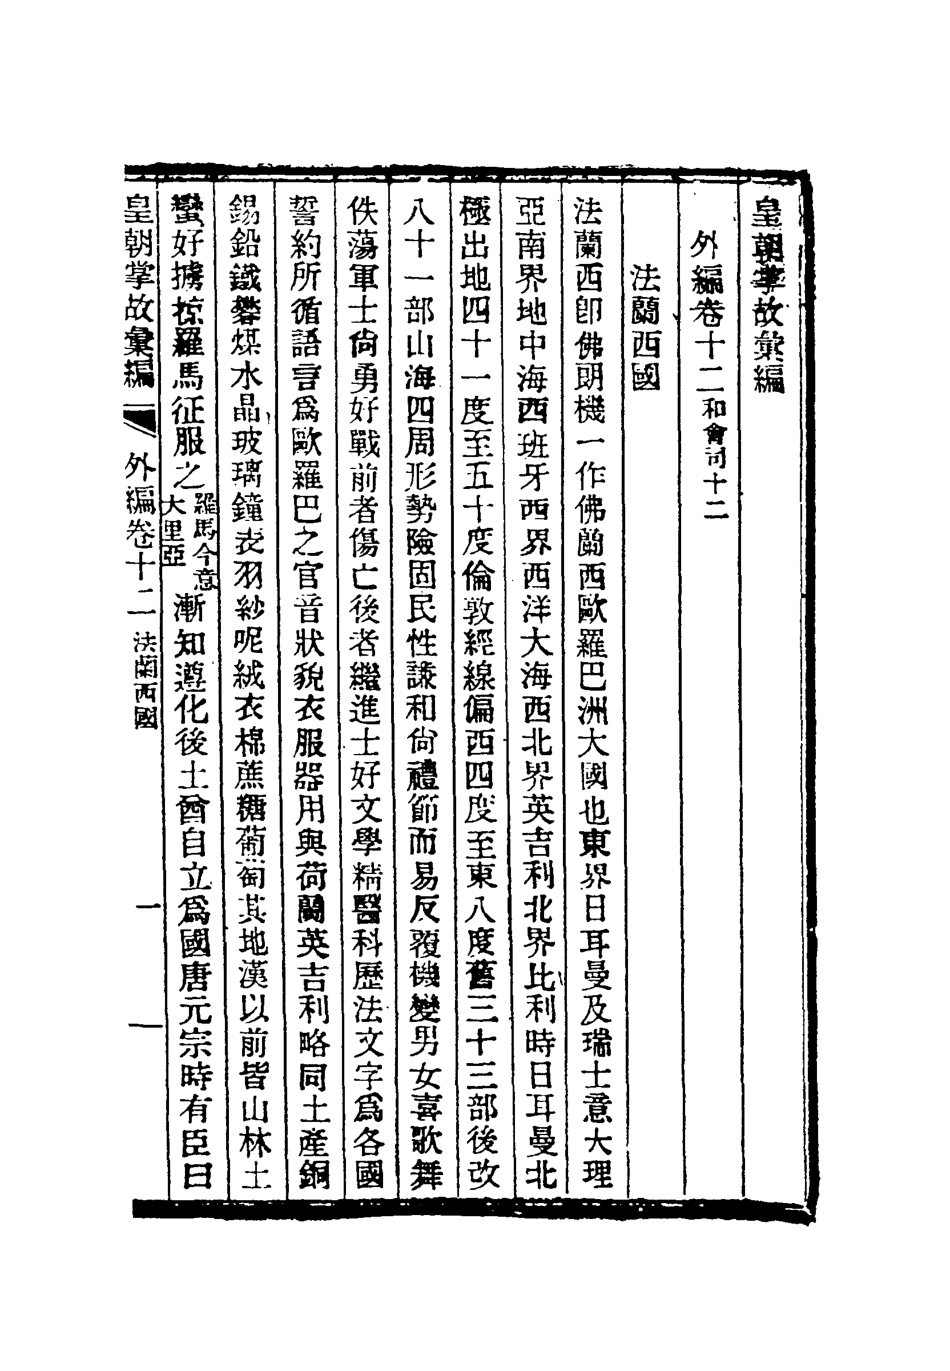 皇朝掌故彙編
外編卷十二和會司十二
法蘭西國
法蘭西卽佛朗機一作佛蘭西歐羅巴洲大國也東界日耳曼及瑞士意大理
亞南界地中海西班牙西界西洋大海西北界英吉利北界比利時日耳曼北
極出地四十一度至五十度倫敦經線偏西四度至東八度舊三十三部後改
八十一部山海四周形勢險固民性謙和尙禮節而易反覆機變男女喜歌舞
佚蕩軍士尙勇好戰前者傷亡後者繼進士好文學精醫科歷法文字爲各國
誓約所循語言爲歐羅巴之官音狀貌衣服器用與荷蘭英吉利略同土產銅
錫鉛鐵礬煤水晶玻璃鐘表羽紗呢絨衣棉蔗糖葡萄其地漢以前皆山林土
蠻好擄掠羅馬征服之羅馬今意大里亞漸知遵化後土酋自立爲國唐元宗時有臣曰
皇朝掌故彙編 外編卷十二 法蘭西國 一